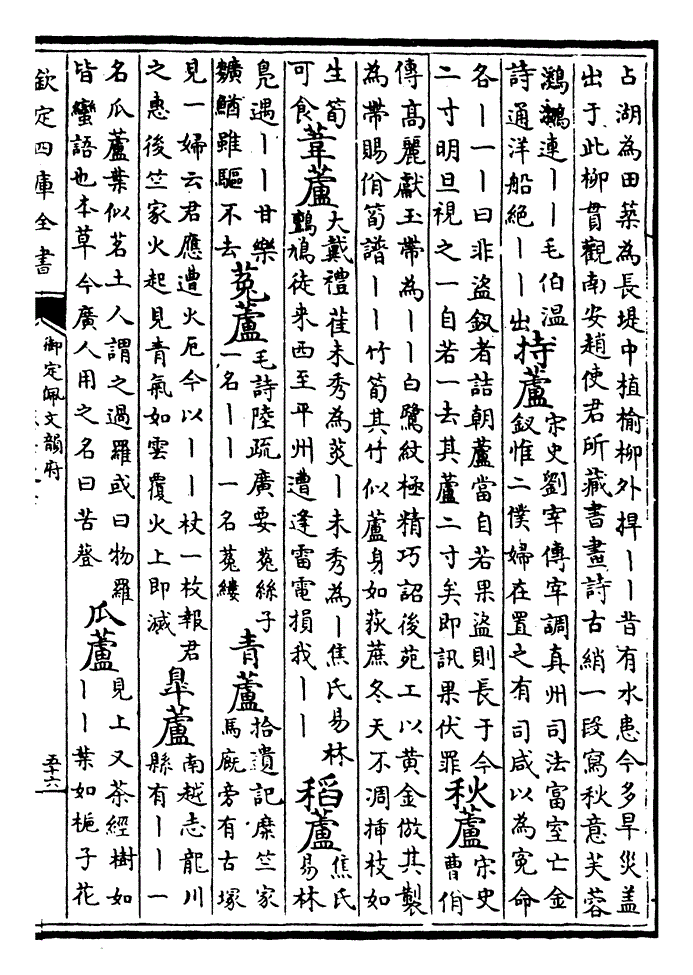 占湖為田築為長堤中植榆柳外捍丨丨昔有水患今多旱災蓋
出于此柳貫觀南安趙使君所藏書畫詩古綃一段寫秋意芙蓉
鸂鶒連丨丨毛伯温
詩通洋船絶丨丨出
持蘆
宋史劉宰傳宰調真州司法富室亡金
釵惟二僕婦在置之有司咸以為寃命
各丨一丨曰非盜釵者詰朝蘆當自若果盜則長于今
二寸明旦視之一自若一去其蘆二寸矣即訊果伏罪
秋蘆
宋史
曹佾
傳髙麗獻玉帶為丨丨白鷺紋極精巧詔後苑工以黄金倣其製
為帶賜佾筍譜丨丨竹筍其竹似蘆身如荻蔗冬天不凋揷枝如
生筍
可食
葦蘆
大戴禮萑未秀為菼丨未秀為丨焦氏易林
鳩徙来西至平州遭逢雷電損我丨丨
稻蘆
焦氏
易林
鳬遇丨丨甘樂
鰌雖驅不去
菟蘆
毛詩陸疏廣要菟絲子
一名丨丨一名菟縷
青蘆
拾遺記糜竺家
馬廐旁有古塚
見一婦云君應遭火厄今以丨丨杖一枚報君
之恵後竺家火起見青氣如雲覆火上即滅
皐蘆
南越志龍川
縣有丨丨一
名瓜蘆葉似茗土人謂之過羅或曰物羅
皆蠻語也本草今廣人用之名曰苦䔲
瓜蘆
見上又茶經樹如
丨丨葉如梔子花
欽定四庫全書
御定佩文韻府
五十六